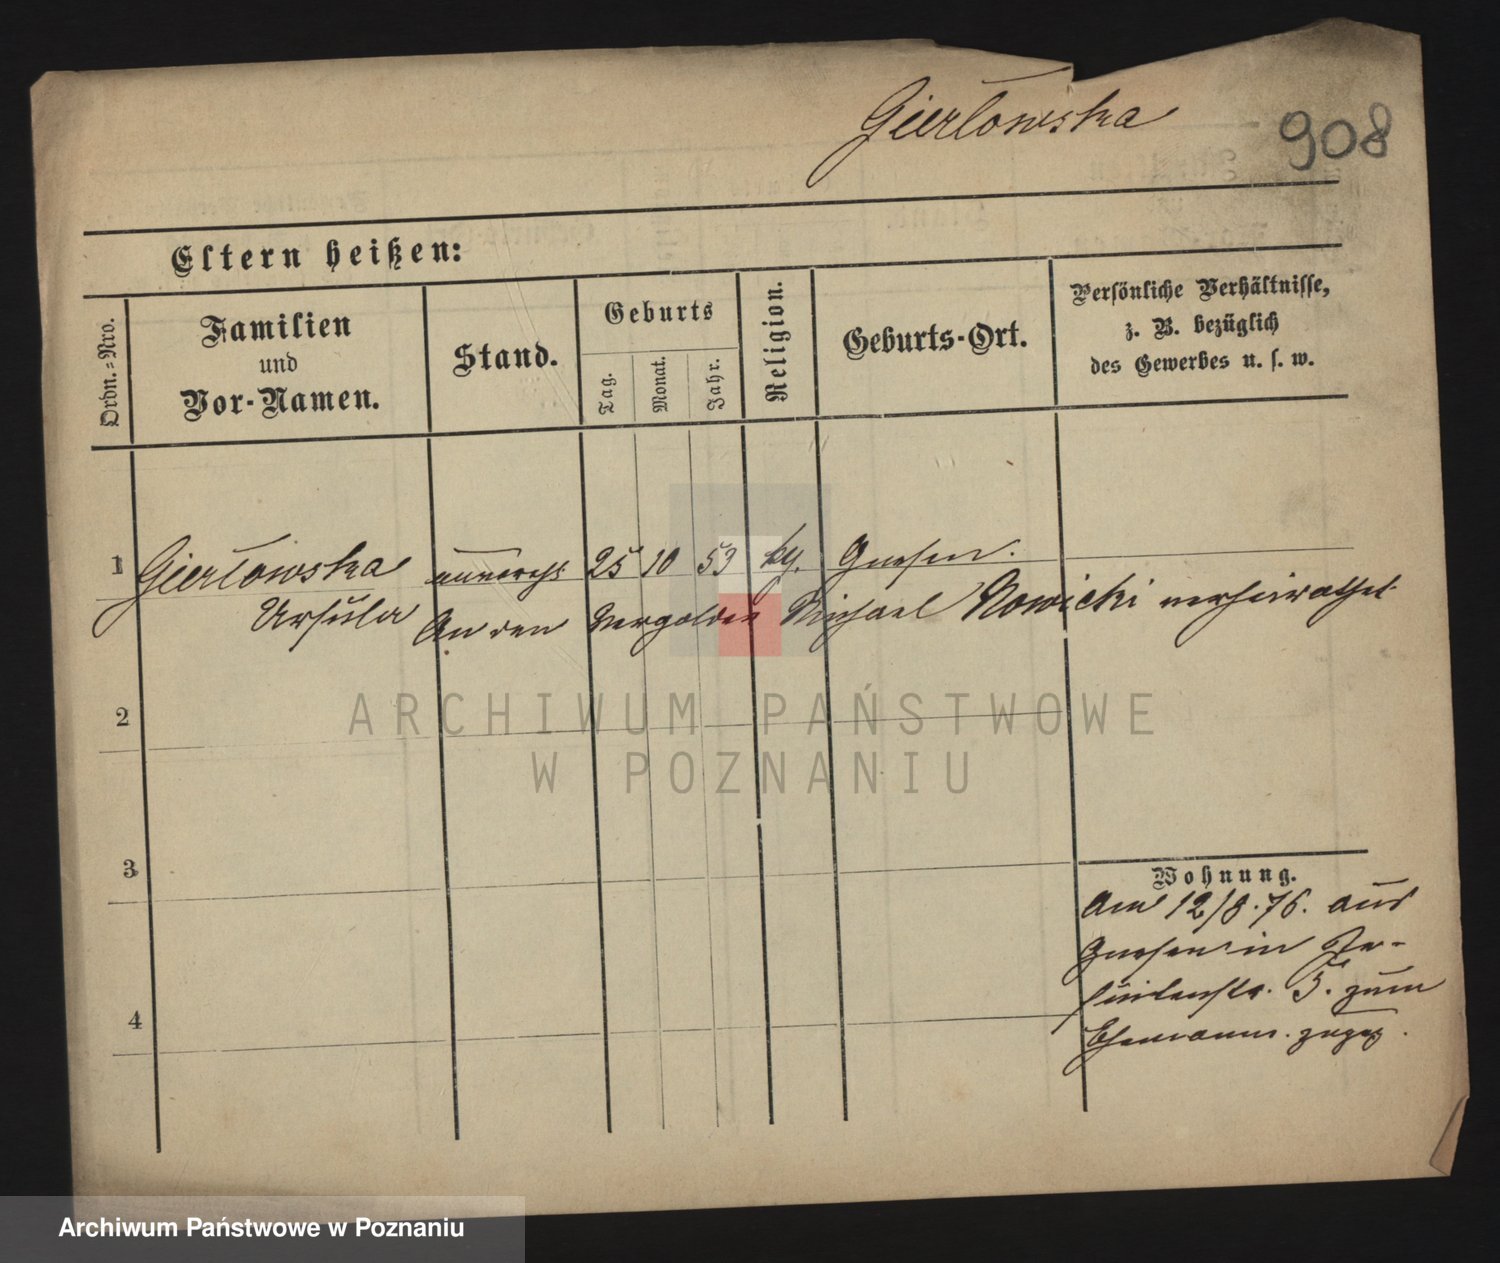 Gierłowska
908
Eltern heißen:
Ordn.=Nro.
Familien
und
Vor-Namen.
Stand.
Geburts
Tag.
Monat.
Jahr.
Religion.
Geburts-Ort.
Persönliche Verhältnisse,
z. B. bezüglich
des Gewerbes u. s. w.
1 Gierłowska unverehl. 25 10 53 kg. Gnesen.
Ursula An den Vergolder Michael Nowicki verheirathet
2
3
4
Wohnung.
Am 12/8.76. aus
Gnesen in Je-
suitenstr. 5. zum
Ehemann. zugez.
ARCHIWUM PAŃSTWOWE
W POZNANIU
Archiwum Państwowe w Poznaniu